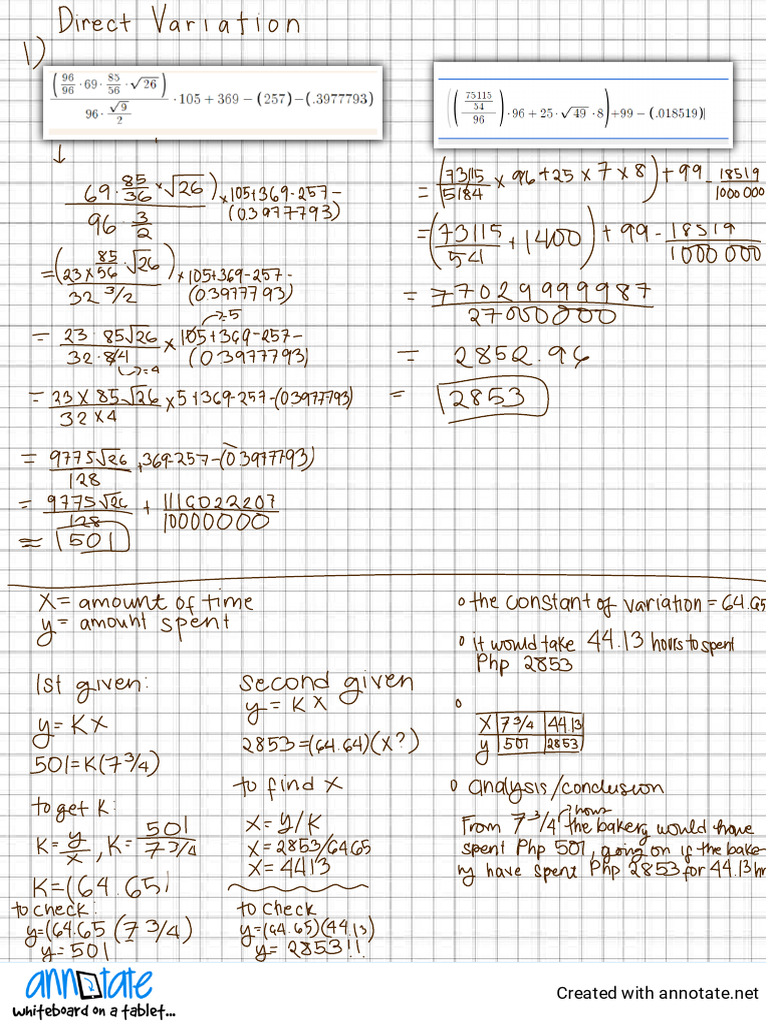 Direct Variation
1)
((96/96 · 69 · 85/56 · √26) / (96 · √9/2)) · 105 + 369 − (257) − (.3977793)
↓
(69 · 85/36 × √26) / (96 · 3/2) × 105+369-257-(0.3977793)
= (23 × 85/56 · √26) / (32 3/2) × 105+369-257-(0.3977793)
= (23 · 85√26) / (32 · 84) × 105+369-257-(0.3977793)
→=5
↳=4
= (23 × 85√26) / (32 × 4) × 5+369-257-(0.3977793)
= 9775√26 / 128 + 369-257-(0.3977793)
= 9775√26 / 128 + 1116022207 / 10000000
≈ 501
(((75115/54)/96) · 96 + 25 · √49 · 8) +99 − (.018519)
= (73115/5184 × 96 + 25 × 7 × 8) + 99 - 18519/1000000
= (73115/54 + 1400) + 99 - 18519/1000000
= 77029999987 / 27000000
= 2852.96
= 2853
X = amount of time
y = amount spent
1st given:
y = KX
501 = K(7 3/4)
to get K:
K = y/x , K = 501 / 7 3/4
K = (64.65)
to check:
y = (64.65 (7 3/4)
y = 501
second given
y = KX
2853 = (64.64)(X?)
to find X
X = Y/K
X = 2853/6465
X = 4413
to check
y = (64.65)(44.13)
y = 2853!!
o the constant of variation = 64.65
o it would take 44.13 hours to spent
Php 2853
o
X | 7 3/4 | 44.13
y | 501 | 2853
o analysis/conclusion
→ hours
From 7 3/4 the bakery would have
spent Php 501, going on if the bake-
ry have spent Php 2853 for 44.13 hr
annotate
whiteboard on a tablet...
Created with annotate.net